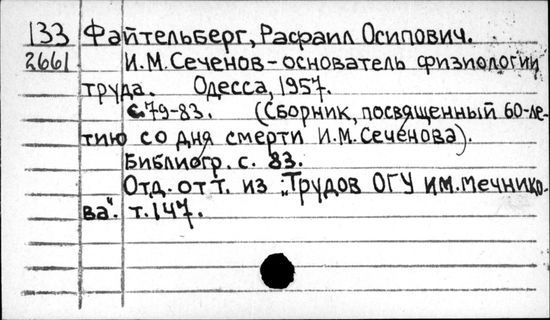 133 Файтельберг, Рафаил Осипович.
2661 И.М. Сеченов - основатель физиологии
труда. Одесса, 1957.
с 79-83. (Сборник, посвященный 60-ле-
тию со дня смерти И.М. Сеченова).
Библиогр. с. 83.
Отд. отт. из „Трудов ОГУ им. Мечнико-
ва". т. 147.